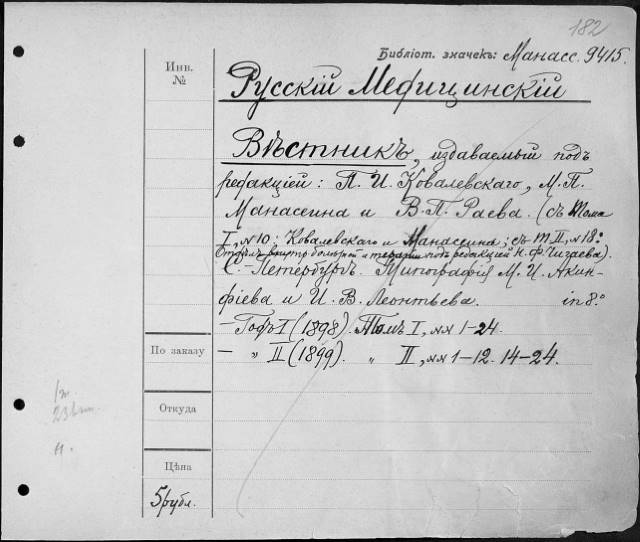 182
Библіот. значекъ: Манасс. 9415.
Инв.
№
Русскій Медицинскій
Вѣстникъ, издаваемый подъ
редакціей: П. И. Ковалевскаго, М. П.
Манасеина и В. П. Раева. (съ Тома
I, № 10: Ковалевскаго и Манассеина; съ Т II, № 18:
и терапіи подъ редакціей Н. Ф. Чигаева).
С.-Петербургъ. Типографія М. И. Акин-
фіева и И. В. Леонтьева. in 8:
— Годъ I (1898). Томъ I, №№ 1-24.
По заказу
— „ II (1899). „ II, №№ 1-12. 14-24.
Откуда
Цѣна
5 рубл.